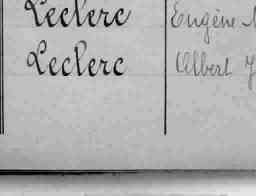 Leclerc Eugène
Leclerc Albert